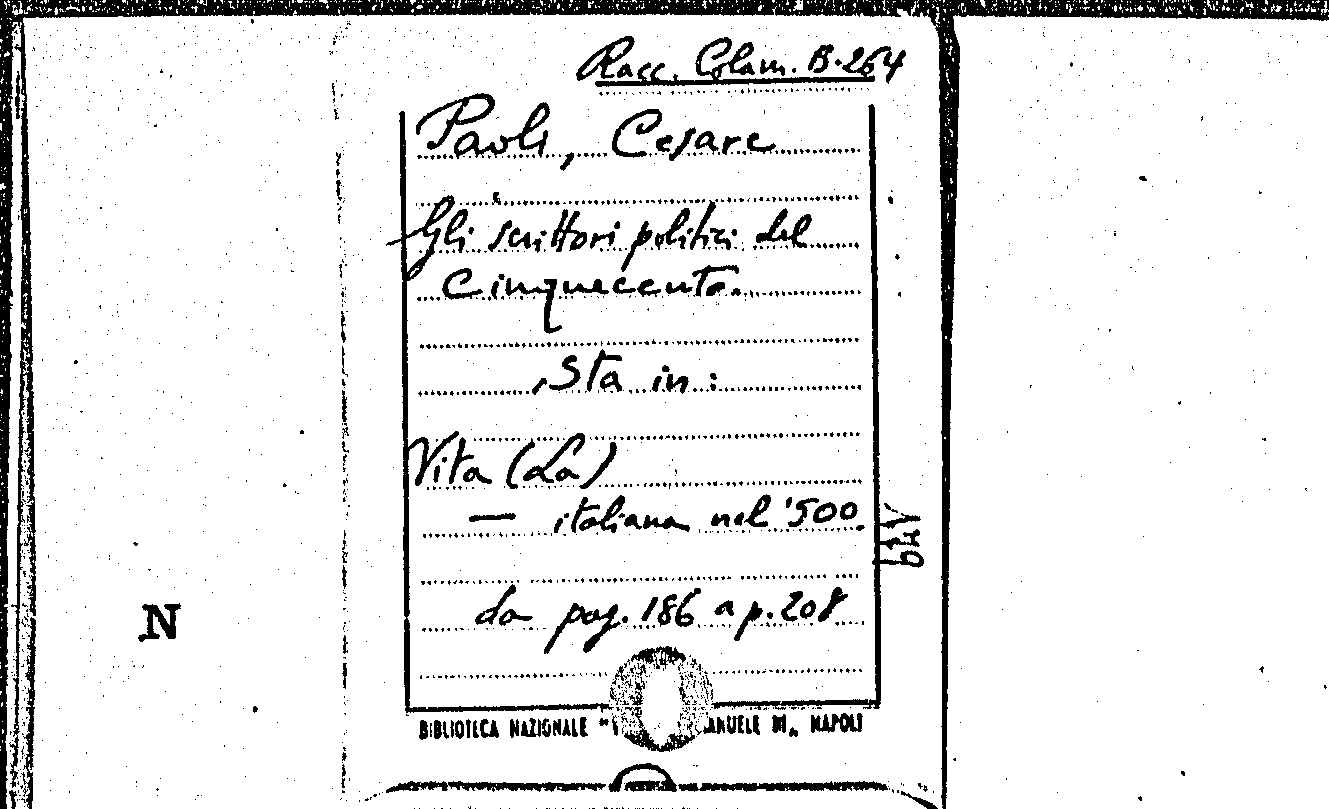 Racc. Colam. B.264
Paoli, Cesare
Gli scrittori politici del
Cinquecento.
Sta in:
Vita (La)
— italiana nel '500.
da pag. 186 a p. 208
N
BIBLIOTECA NAZIONALE " ANUELE III„ NAPOLI